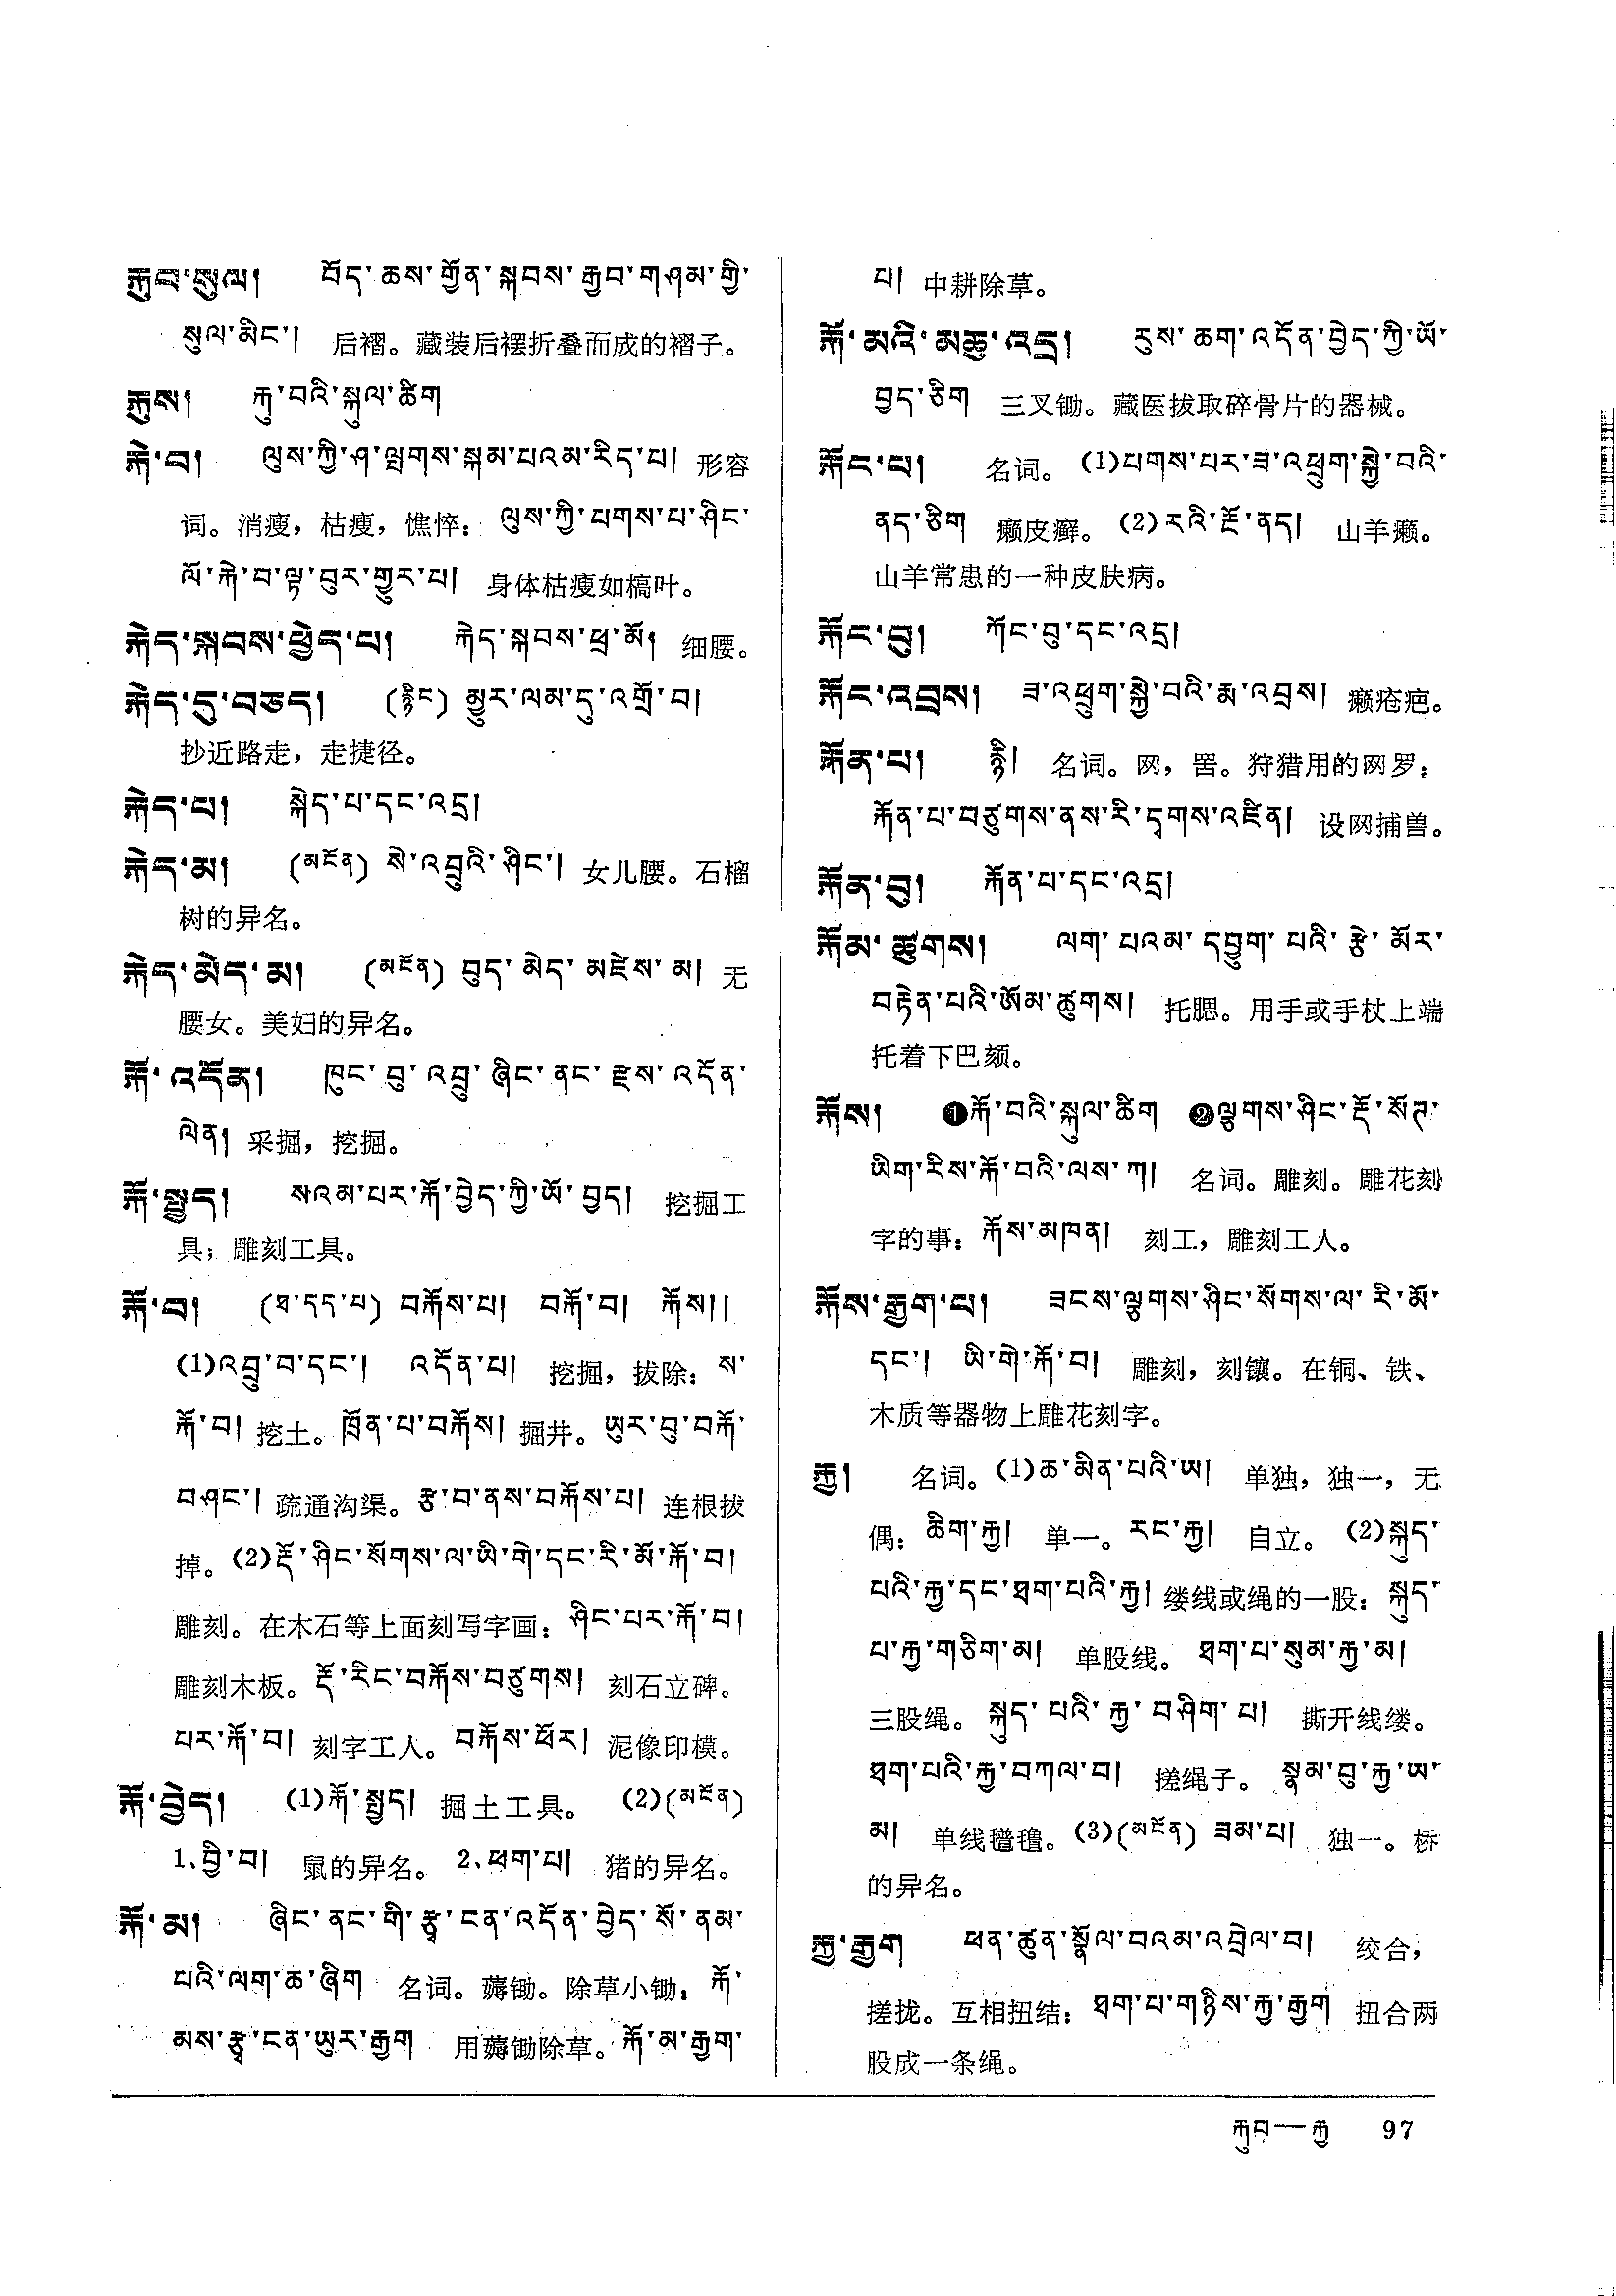 རྐུབ་སུལ། བོད་ཆས་གྱོན་སྐབས་རྒྱབ་གཤམ་གྱི་
སུལ་མིང་། 后褶。藏装后襬折叠而成的褶子。
རྐུས། རྐུ་བའི་སྐུལ་ཚིག
རྐེ་བ། ལུས་ཀྱི་ཤ་ལྤགས་སྐམ་པའམ་རིད་པ། 形容
词。消瘦，枯瘦，憔悴：ལུས་ཀྱི་པགས་པ་ཤིང་
ལོ་རྐེ་བ་ལྟ་བུར་གྱུར་པ། 身体枯瘦如槁叶。
རྐེད་སྐབས་ཕྱེད་པ། རྐེད་སྐབས་ཕྲ་མོ། 细腰。
རྐེད་དུ་བཅད། (རྙིང) མྱུར་ལམ་དུ་འགྲོ་བ།
抄近路走，走捷径。
རྐེད་པ། སྐེད་པ་དང་འདྲ།
རྐེད་མ། (མངོན) སེ་འབྲུའི་ཤིང་། 女儿腰。石榴
树的异名。
རྐེད་མེད་མ། (མངོན) བུད་མེད་མཛེས་མ། 无
腰女。美妇的异名。
རྐོ་འདོན། ཁུང་བུ་འབྲུ་ཞིང་ནང་རྫས་འདོན་
ལེན། 采掘，挖掘。
རྐོ་སྤྱད། སའམ་པར་རྐོ་བྱེད་ཀྱི་ཡོ་བྱད། 挖掘工
具；雕刻工具。
རྐོ་བ། (ཐ་དད་པ) བརྐོས་པ། བརྐོ་བ། རྐོས།།
(1)འབྲུ་བ་དང་། འདོན་པ། 挖掘，拔除：ས་
རྐོ་བ། 挖土。ཁྲོན་པ་བརྐོས། 掘井。ཡུར་བུ་བརྐོ་
བཤང་། 疏通沟渠。རྩ་བ་ནས་བརྐོས་པ། 连根拔
掉。(2)རྡོ་ཤིང་སོགས་ལ་ཡི་གེ་དང་རི་མོ་རྐོ་བ།
雕刻。在木石等上面刻写字画：ཤིང་པར་རྐོ་བ།
雕刻木板。རྡོ་རིང་བརྐོས་བཙུགས། 刻石立碑。
པར་རྐོ་བ། 刻字工人。བརྐོས་ཕོར། 泥像印模。
རྐོ་བྱེད། (1)རྐོ་སྤྱད། 掘土工具。 (2)(མངོན)
1、བྱི་བ། 鼠的异名。 2、ཕག་པ། 猪的异名。
རྐོ་མ། ཞིང་ནང་གི་རྩྭ་ངན་འདོན་བྱེད་སོ་ནམ་
པའི་ལག་ཆ་ཞིག 名词。薅锄。除草小锄：རྐོ་
མས་རྩྭ་ངན་ཡུར་རྒྱག 用薅锄除草。རྐོ་མ་རྒྱག་
པ། 中耕除草。
རྐོ་མའི་མཆུ་འདྲ། རུས་ཆག་འདོན་བྱེད་ཀྱི་ཡོ་
བྱད་ཅིག 三叉锄。藏医拔取碎骨片的器械。
རྐོང་པ། 名词。(1)པགས་པར་ཟ་འཕྲུག་སྐྱེ་བའི་
ནད་ཅིག 癞皮癣。(2)རའི་རྔོ་ནད། 山羊癞。
山羊常患的一种皮肤病。
རྐོང་བུ། ཀོང་བུ་དང་འདྲ།
རྐོང་འབྲས། ཟ་འཕྲུག་སྐྱེ་བའི་རྨ་འབྲས། 癞疮疤。
རྐོན་པ། རྙི། 名词。网，罟。狩猎用的网罗：
རྐོན་པ་བཙུགས་ནས་རི་དྭགས་འཛིན། 设网捕兽。
རྐོན་བུ། རྐོན་པ་དང་འདྲ།
རྐོམ་ཚུགས། ལག་པའམ་དབྱུག་པའི་རྩེ་མོར་
བརྟེན་པའི་ཨོམ་ཚུགས། 托腮。用手或手杖上端
托着下巴颏。
རྐོས། ❶རྐོ་བའི་སྐུལ་ཚིག ❷ལྕགས་ཤིང་རྡོ་སོཊ་
ཡིག་རིས་རྐོ་བའི་ལས་ཀ། 名词。雕刻。雕花刻
字的事：རྐོས་མཁན། 刻工，雕刻工人。
རྐོས་རྒྱག་པ། ཟངས་ལྕགས་ཤིང་སོགས་ལ་རི་མོ་
དང་། ཡི་གེ་རྐོ་བ། 雕刻，刻镶。在铜、铁、
木质等器物上雕花刻字。
རྐྱ། 名词。(1)ཆ་མིན་པའི་ཨ། 单独，独一，无
偶：ཆིག་རྐྱ། 单一。རང་རྐྱ། 自立。 (2)སྐུད་
པའི་རྐྱ་དང་ཐག་པའི་རྐྱ། 缕线或绳的一股：སྐུད་
པ་རྐྱ་གཅིག་མ། 单股线。 ཐག་པ་སུམ་རྐྱ་མ།
三股绳。སྐུད་པའི་རྐྱ་བཤིག་པ། 撕开线缕。
ཐག་པའི་རྐྱ་བཀལ་བ། 搓绳子。 སྣམ་བུ་རྐྱ་ཨ་
མ། 单线氆氇。(3)(མངོན) ཟམ་པ། 独一。桥
的异名。
རྐྱ་རྒྱག ཕན་ཚུན་སྣོལ་བའམ་འབྲེལ་བ། 绞合，
搓拢。互相扭结：ཐག་པ་གཉིས་རྐྱ་རྒྱག 扭合两
股成一条绳。
རྐུབ—རྐྱ 97